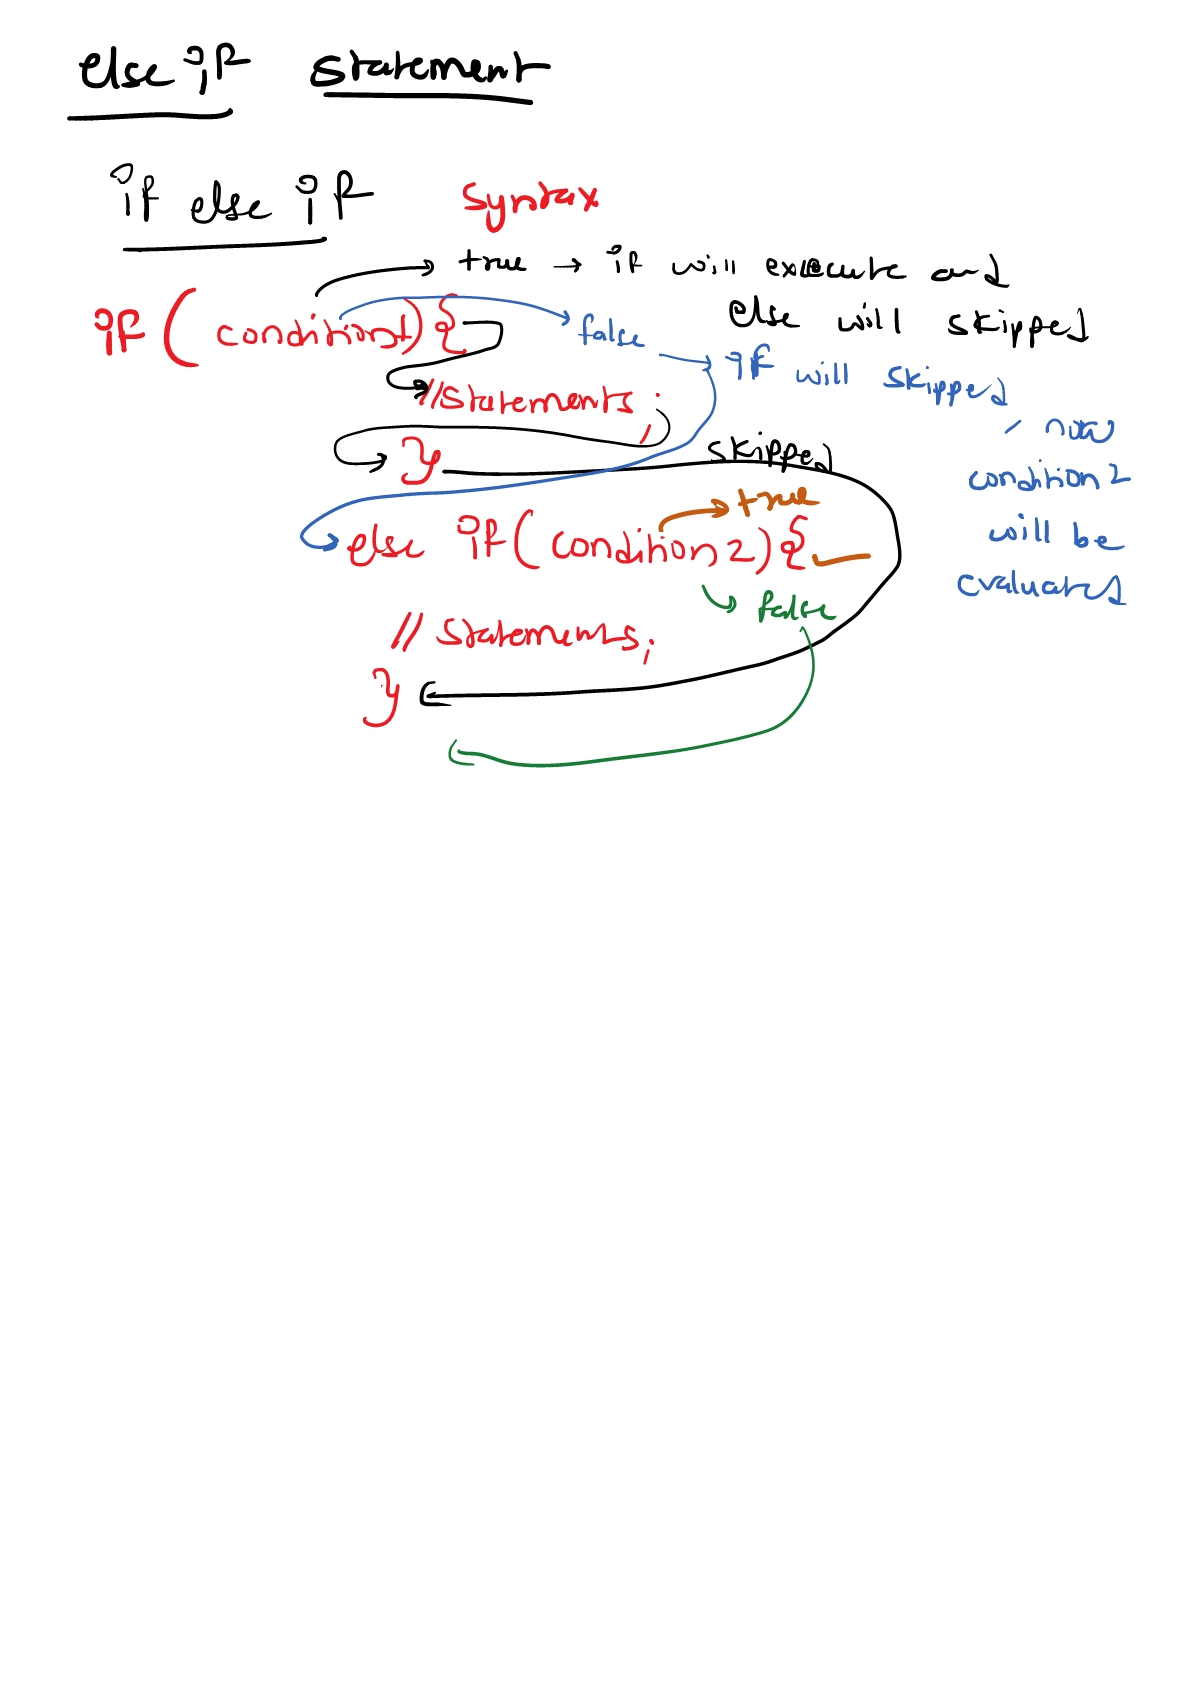 else if statement
if else if syntax
true → if will execute and
else will skipped
if ( condition1) {
false
if will skipped
, now
condition 2
will be
evaluates
//statements ;
}
skipped
true
else if ( condition 2) {
false
// statements;
}